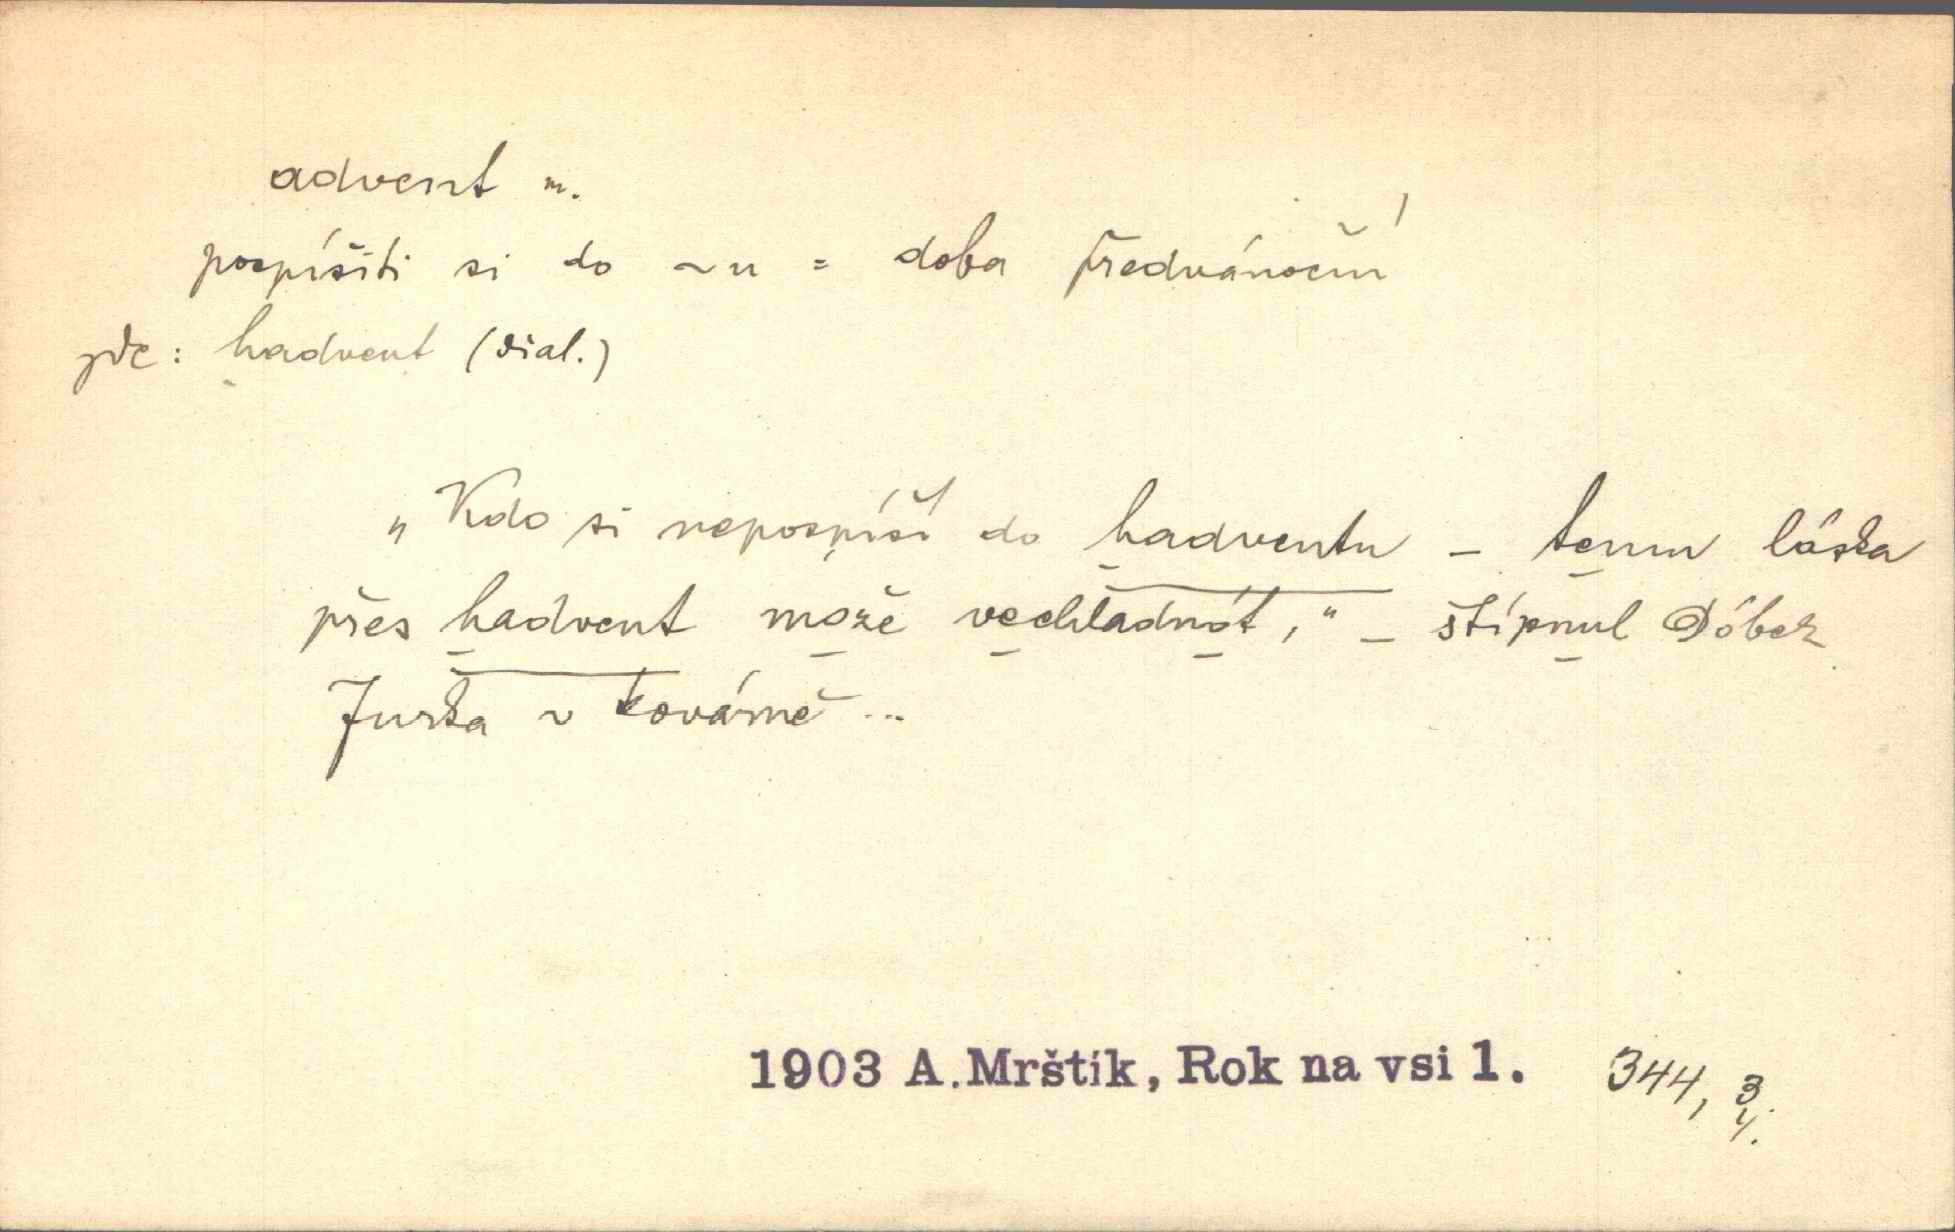 advent m.
pospíšiti si do ~u = doba předvánoční
zde: hadvent (dial.)
„Kdo si nepospíší do hadventu – temu láska
přes hadvent može vechladnót,“ – štípnul Dóbek
Jurka v kovárně ...
1903 A. Mrštík, Rok na vsi 1. 344, 3